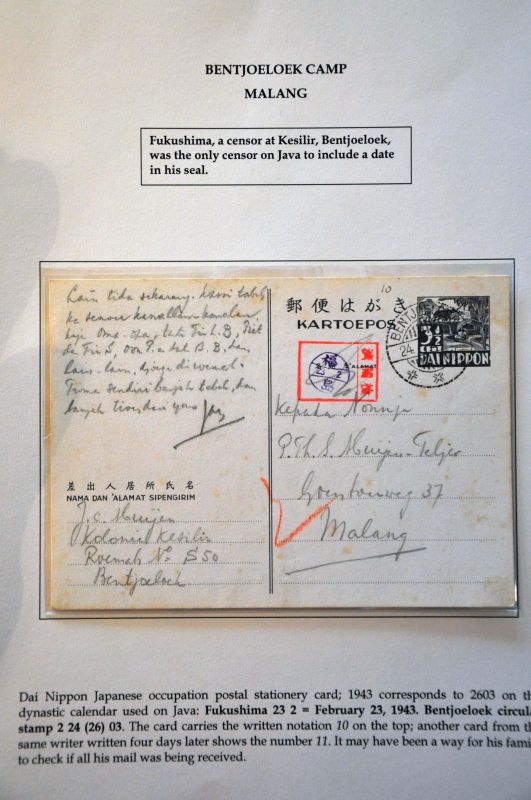 BENTJOELOEK CAMP
MALANG
Fukushima, a censor at Kesilir, Bentjoeloek,
was the only censor on Java to include a date
in his seal.
10
郵便はがき
KARTOEPOS
BENTJ
24
3½
DAI NIPPON
'ALAMAT
島
23 2
Lain tida sekarang. Kasi tabeh
ka semoea kenallan-kenalan,
Oma-Opa,
lain-lain,
Trima sendiri banjak tabeh, dan
banjak
Kepada Nonnja
P. Th. S. Muijen-Teljer
37
Malang
差出人居所氏名
NAMA DAN 'ALAMAT SIPENGIRIM
J. C. Muijen
Kolonie Kesilir
Roemah No. S 50
Bentjoeloek
Dai Nippon Japanese occupation postal stationery card; 1943 corresponds to 2603 on th
dynastic calendar used on Java: Fukushima 23 2 = February 23, 1943. Bentjoeloek circul
stamp 2 24 (26) 03. The card carries the written notation 10 on the top; another card from th
same writer written four days later shows the number 11. It may have been a way for his fami
to check if all his mail was being received.